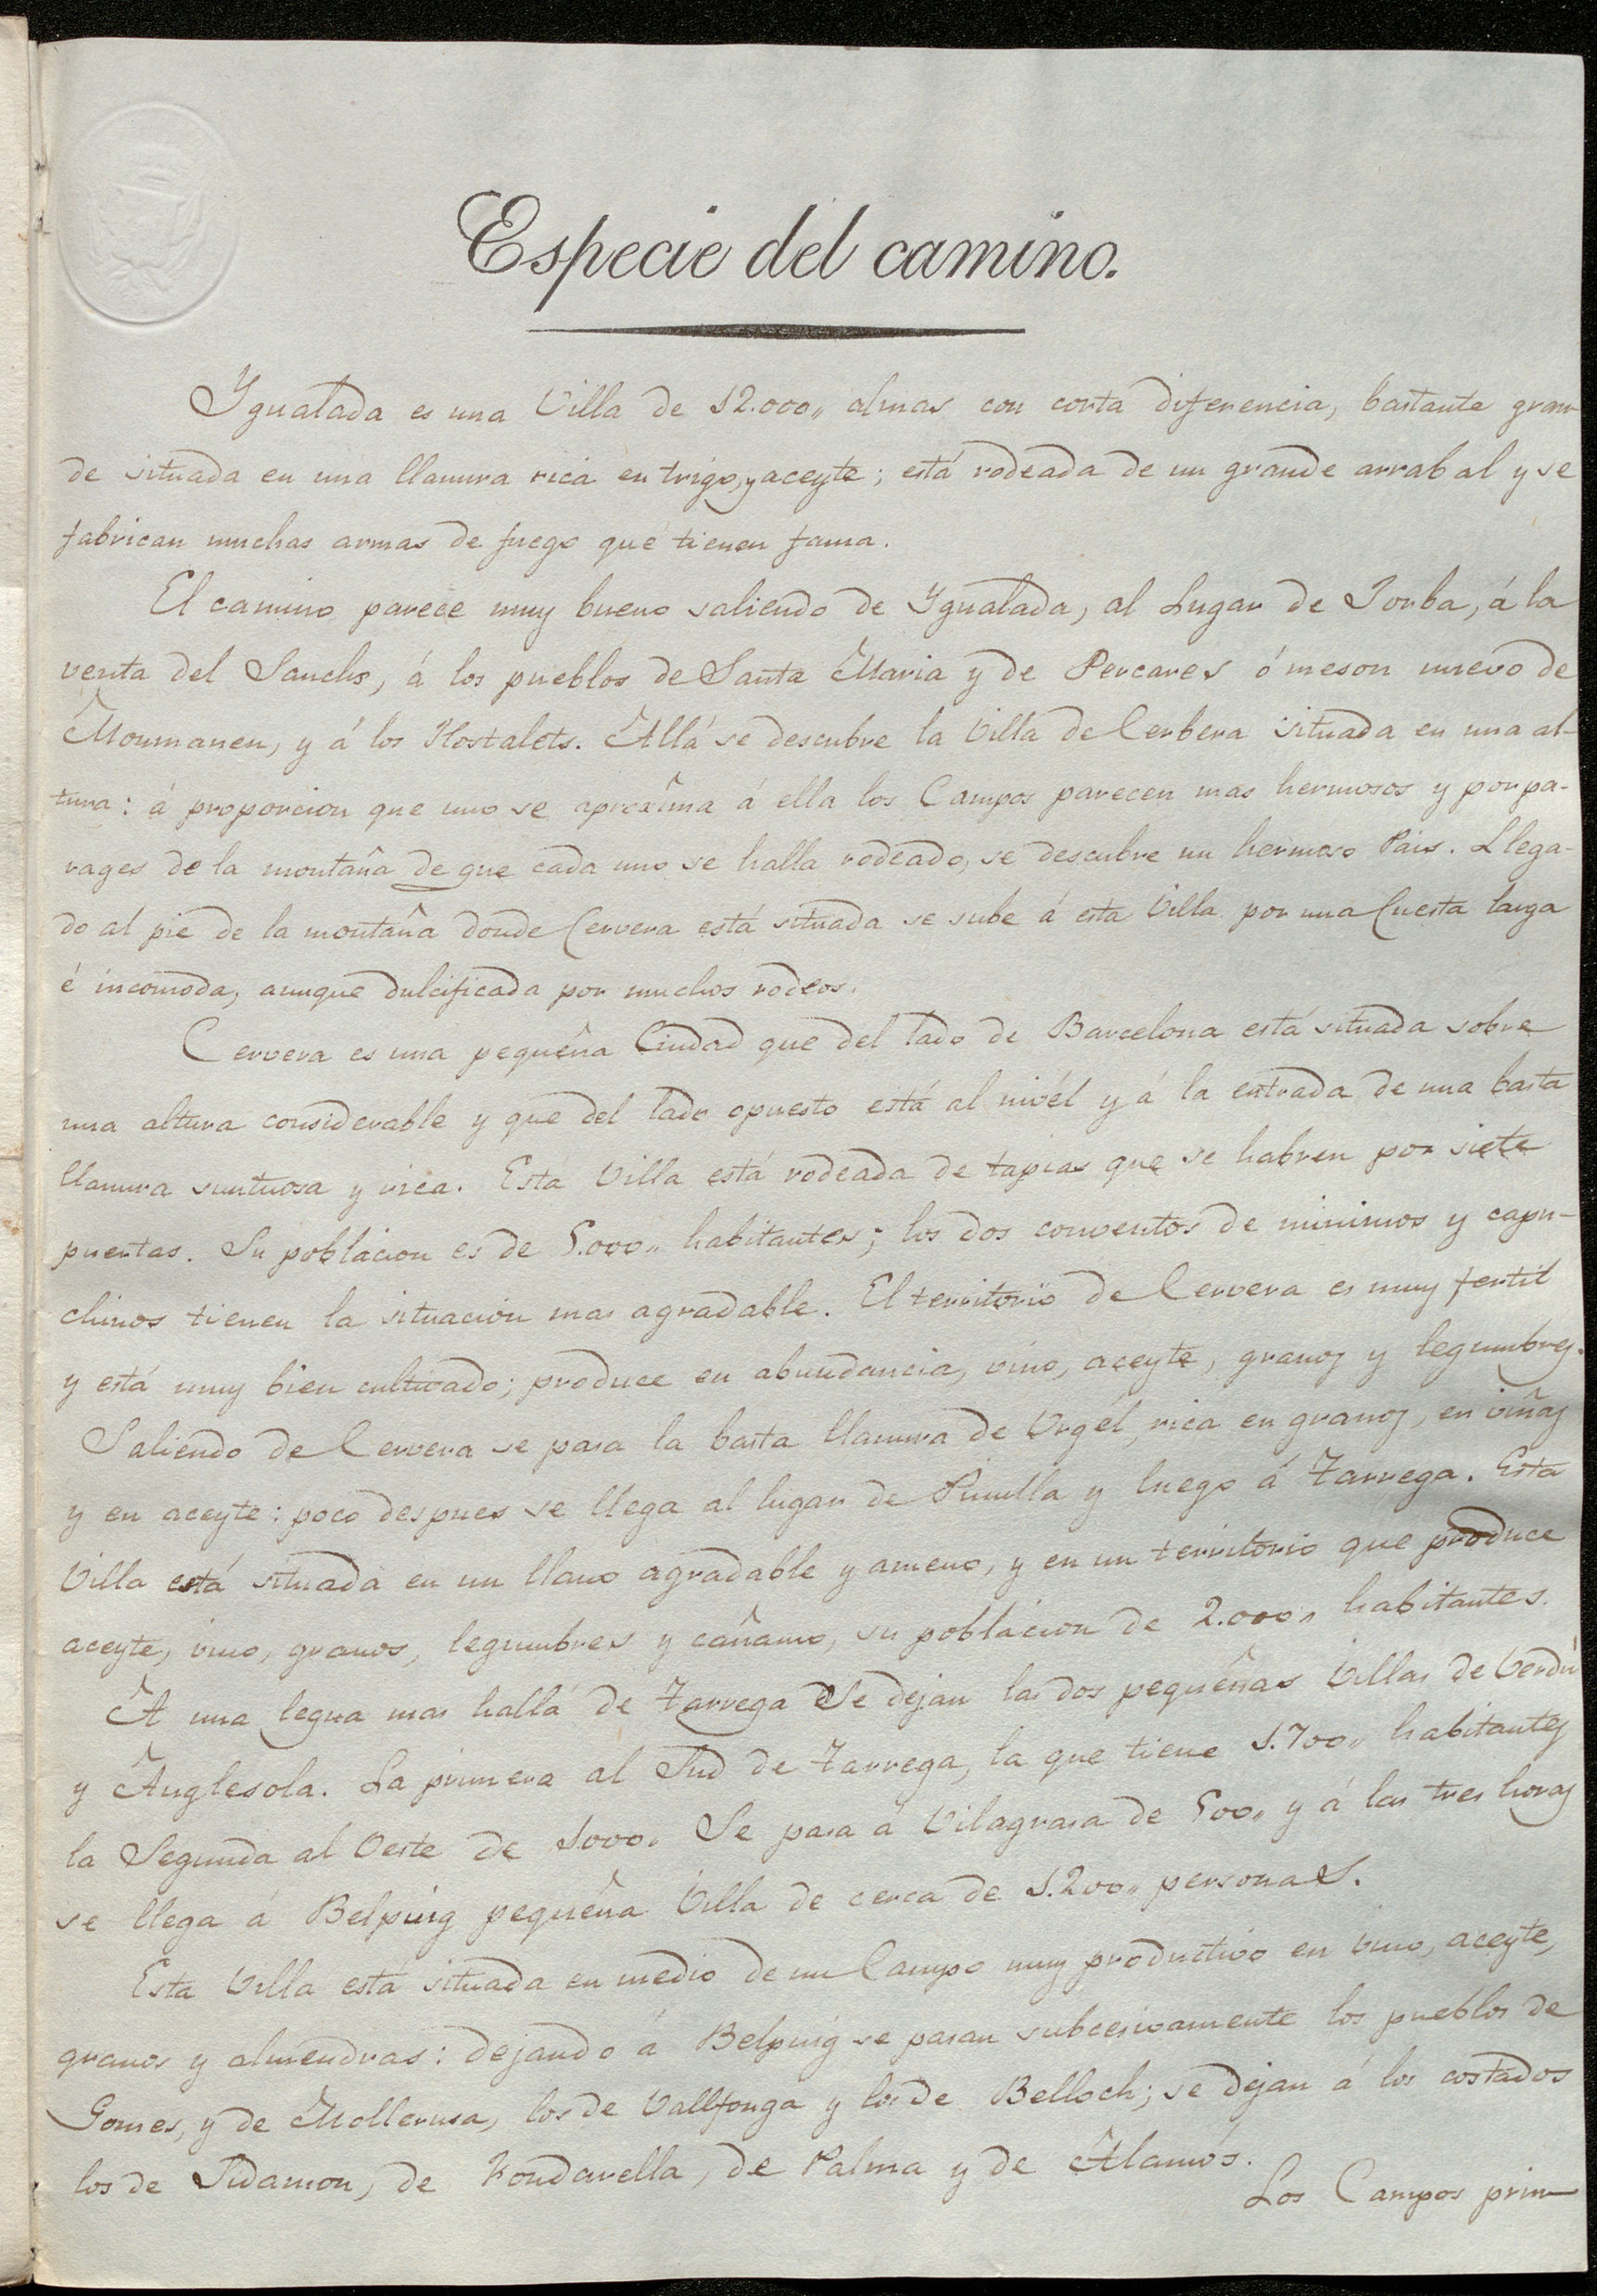 Especie del camino.
Ygualada es una Villa de 12.000,, almas con corta diferencia, bastante gran-
de situada en una llanura rica en trigo, y aceyte; está rodeada de un grande arrabal y se
fabrican muchas armas de fuego que tienen fama.
El camino parece muy bueno saliendo de Ygualada, al Lugar de Jorba, á la
venta del Sanchs, á los pueblos de Santa Maria y de Percares ó meson nuevo de
Moumanen, y á los Hostalets. Allá se descubre la Villa de Cerbera situada en una al-
tura: á proporcion que uno se aproxîma á ella los Campos parecen mas hermosos y por pa-
rages de la montaña de que cada uno se halla rodeado, se descubre un hermoso Pais. Llega-
do al pie de la montaña donde Cervera está situada se sube á esta Villa por una Cuesta larga
é incomoda, aunque dulcificada por muchos rodeos.
Cervera es una pequeña Ciudad que del lado de Barcelona está situada sobre
una altura considerable y que del lado opuesto está al nivél y á la entrada de una basta
llanura suntuosa y rica. Esta Villa está rodeada de tapias que se habren por siete
puertas. Su poblacion es de 5.000,, habitantes; los dos conventos de minimos y capu-
chinos tienen la situacion mas agradable. El territorio de Cervera es muy fertil
y está muy bien cultivado; produce en abundancia, vino, aceyte, granos y legumbres.
Saliendo de Cervera se pasa la basta llanura de Urgél, rica en granos, en viñas
y en aceyte: poco despues se llega al lugar de Pinulla y luego á Tarrega. Esta
Villa está situada en un llano agradable y ameno, y en un territorio que produce
aceyte, vino, granos, legumbres y cañamo, su poblacion de 2.000,, habitantes.
A una legua mas hallá de Tarrega se dejan las dos pequeñas Villas de Verdú
y Anglesola. La primera al Sud de Tarrega, la que tiene 1.700,, habitantes
la Segunda al Oeste de 1000. Se pasa á Vilagrasa de 500,, y á las tres horas
se llega á Belpuig pequeña Villa de cerca de 1.200,, personas.
Esta Villa está situada en medio de un Campo muy productivo en vino, aceyte,
granos y almendras: dejando á Belpuig se pasan subcesivamente los pueblos de
Gomes, y de Mollerusa, los de Vallfonga y los de Belloch; se dejan á los costados
los de Sidamon, de Fondarella, de Palma y de Alamós.
Los Campos prin-